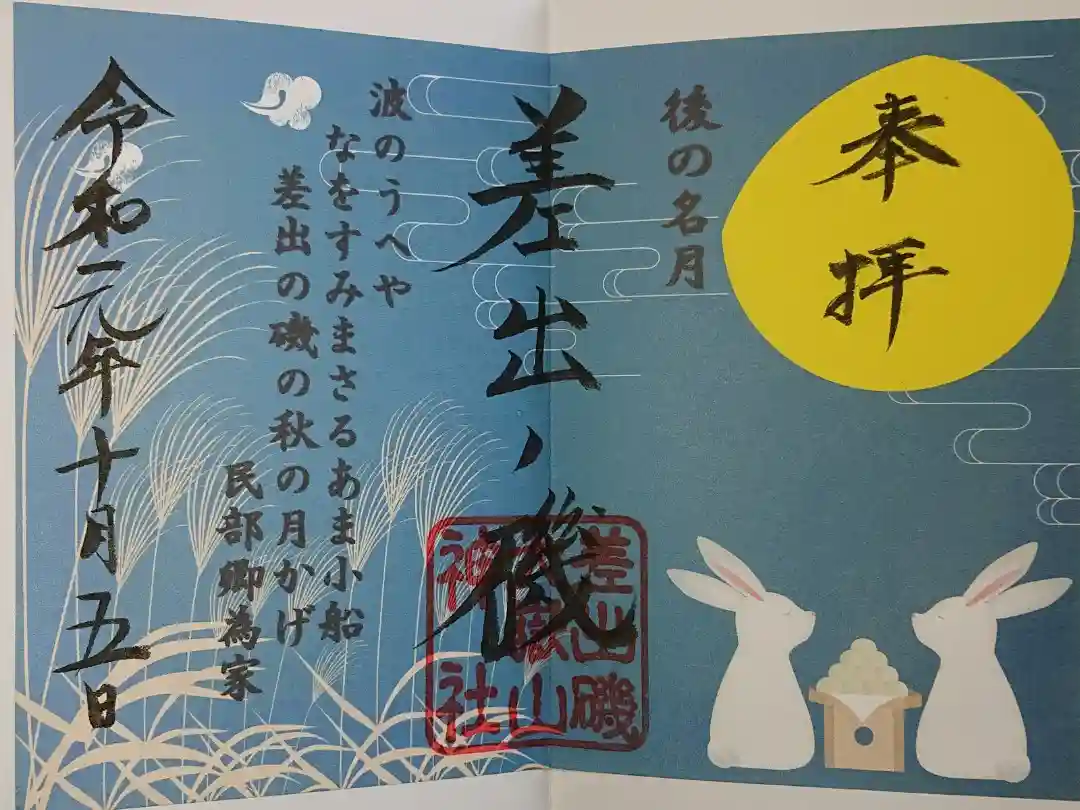 奉拝
後の名月
差出ノ磯
差出磯
大嶽山
神社
波のうへや
なをすみまさるあま小船
差出の磯の秋の月かげ
民部卿為家
令和元年十月五日